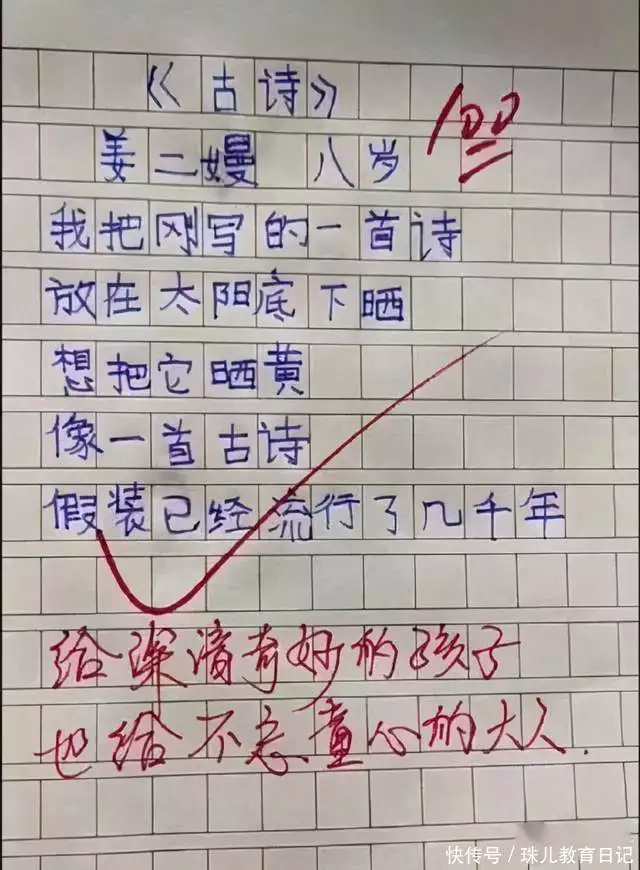 《古诗》
100
姜二嫚 八岁
我把刚写的一首诗
放在太阳底下晒
想把它晒黄
像一首古诗
假装已经流行了几千年
给深谙奇好的孩子
也给不忘童心的大人.
快传号/珠儿教育日记